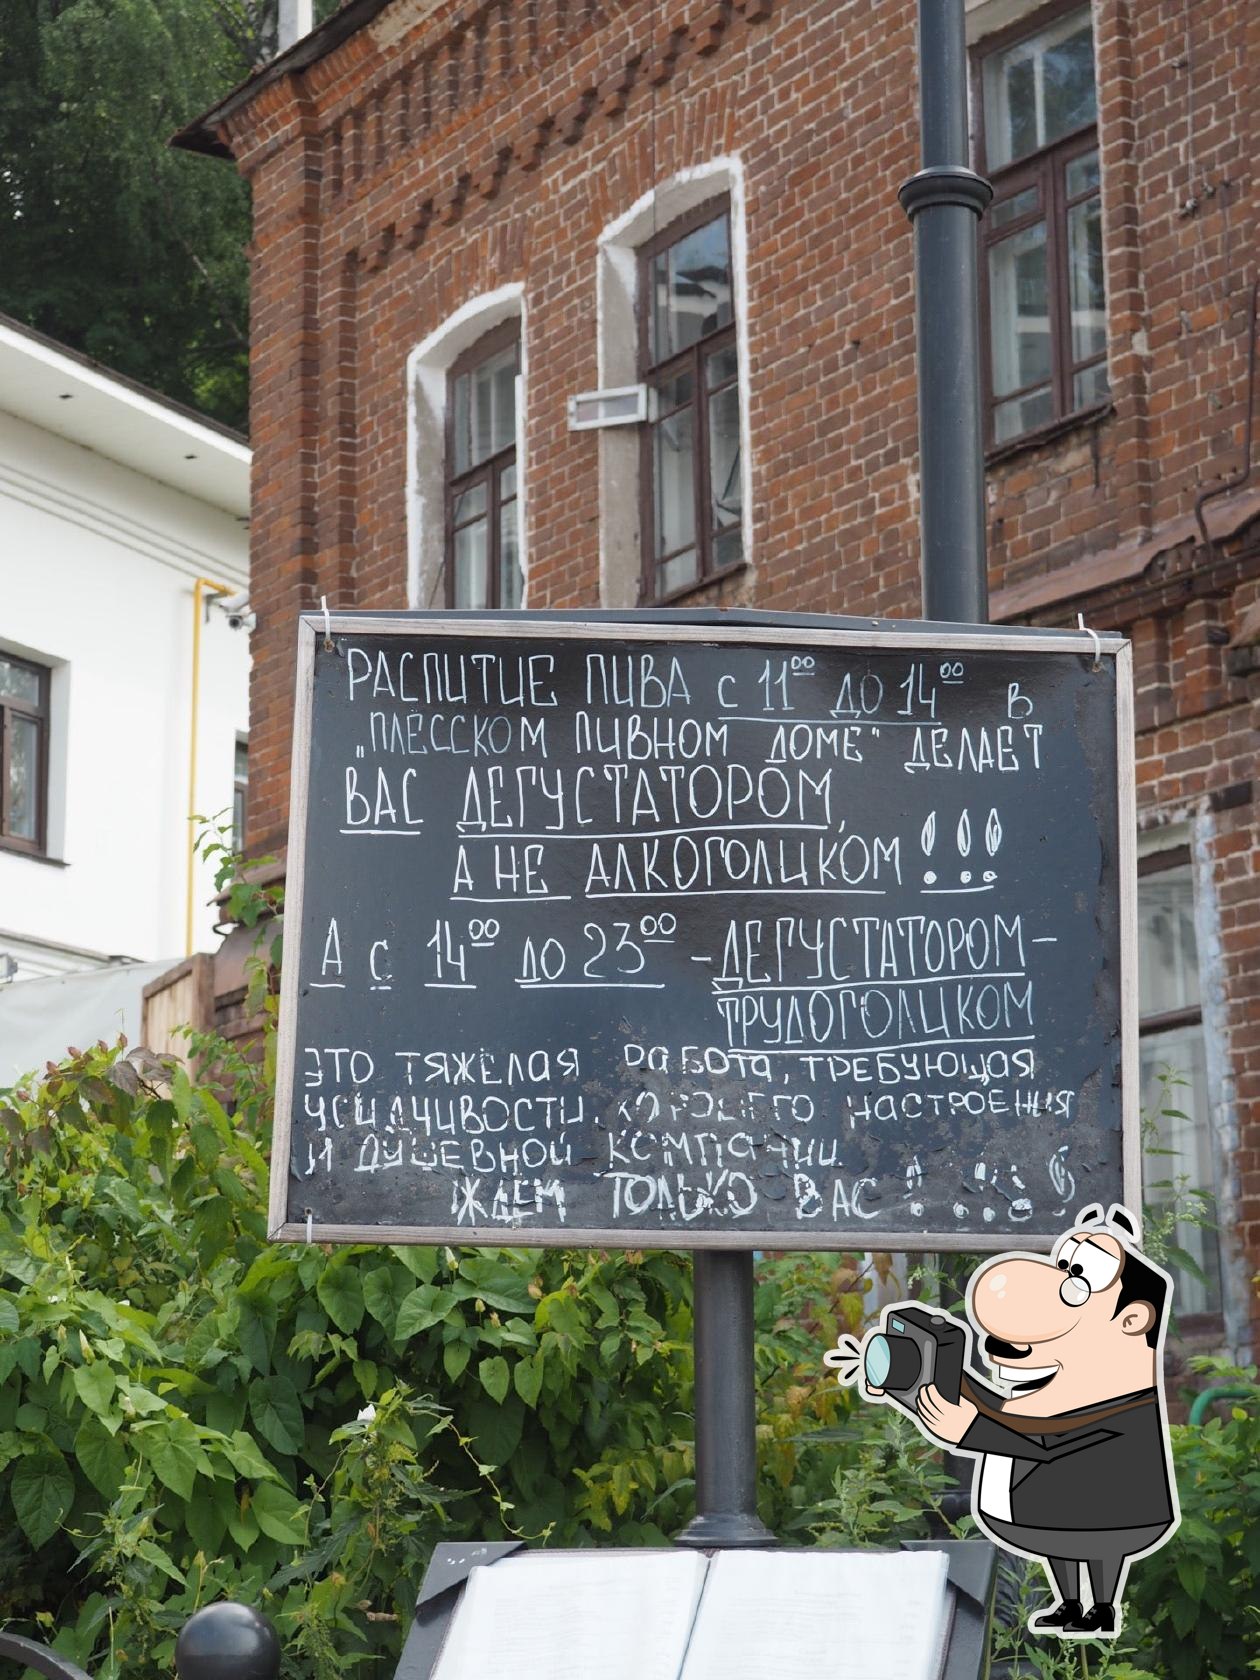 РАСПИТИЕ ПИВА с 11⁰⁰ ДО 14⁰⁰ в
„ПЛЁССКОМ ПИВНОМ ДОМЕ" ДЕЛАЕТ
ВАС ДЕГУСТАТОРОМ,
А НЕ АЛКОГОЛИКОМ!!!
А с 14⁰⁰ ДО 23⁰⁰ - ДЕГУСТАТОРОМ-
ТРУДОГОЛИКОМ
ЭТО ТЯЖЁЛАЯ РАБОТА, ТРЕБУЮЩАЯ
УСИДЧИВОСТИ, ХОРОШЕГО НАСТРОЕНИЯ
И ДУШЕВНОЙ КОМПАНИИ
ЖДЕМ ТОЛЬКО ВАС !...!